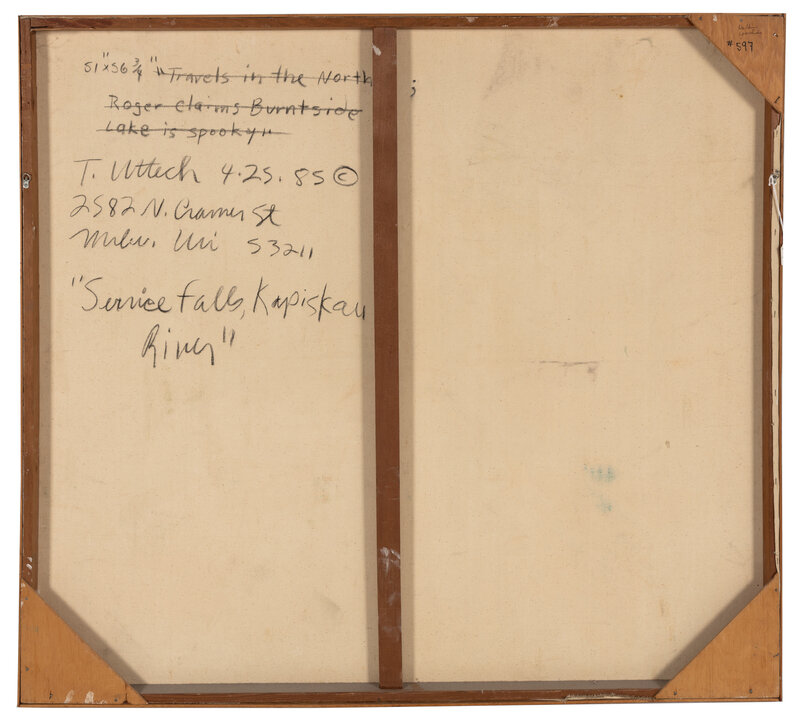 51"x56 3/4" "Travels in the North;
Roger Claims Burntside
Lake is spooky"
T. Uttech 4.25.85©
2582 N. Cramer St
Milw. Wi 53211
"Service Falls, Kapiskau
River"
#597